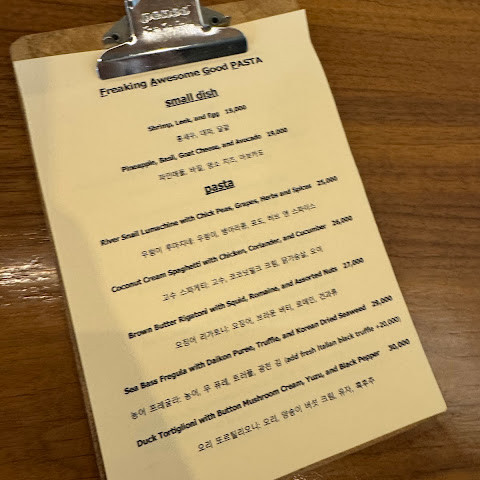 Freaking Awesome Good PASTA
small dish
Shrimp, Leek, and Egg 15,000
홍새우, 대파, 달걀
Pineapple, Basil, Goat Cheese, and Avocado 15,000
파인애플, 바질, 염소 치즈, 아보카도
pasta
River Snail Lumachine with Chick Peas, Grapes, Herbs and Spices 25,000
우렁이 루마키네: 우렁이, 병아리콩, 포도, 허브 앤 스파이스
Coconut Cream Spaghetti with Chicken, Coriander, and Cucumber 26,000
고수 스파게티: 고수, 코코넛밀크 크림, 닭가슴살, 오이
Brown Butter Rigatoni with Squid, Romaine, and Assorted Nuts 27,000
오징어 리가토니: 오징어, 브라운 버터, 로메인, 견과류
Sea Bass Fregula with Daikon Puree, Truffle, and Korean Dried Seaweed 28,000
농어 프레굴라: 농어, 무 퓨레, 트러플, 곱창 김 (add fresh Italian black truffle +20,000)
Duck Tortiglioni with Button Mushroom Cream, Yuzu, and Black Pepper 30,000
오리 또르틸리오니: 오리, 양송이 버섯 크림, 유자, 흑후추